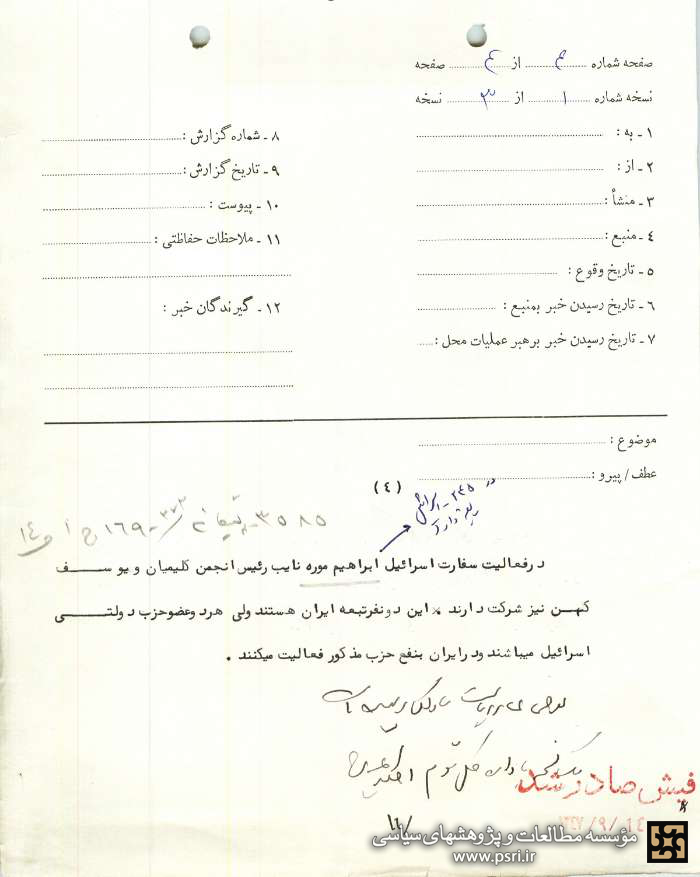 صفحه شماره ۴ از ۴ صفحه
نسخه شماره ۱ از ۳ نسخه
۱ - به :
۲ - از :
۳ - منشأ :
۴ - منبع :
۵ - تاریخ وقوع :
۶ - تاریخ رسیدن خبر بمنبع :
۷ - تاریخ رسیدن خبر برهبر عملیات محل :
۸ - شماره گزارش :
۹ - تاریخ گزارش :
۱۰ - پیوست :
۱۱ - ملاحظات حفاظتی :
۱۲ - گیرندگان خبر :
موضوع :
عطف/ پیرو :
(۴)
در فعالیت سفارت اسرائیل ابراهیم موره نایب رئیس انجمن کلیمیان و یوسف
کهن نیز شرکت دارند . این دو نفر تبعه ایران هستند ولی هر دو عضو حزب دولتی
اسرائیل میباشند و در ایران بنفع حزب مذکور فعالیت میکنند .
فیش صادر شد
مؤسسه مطالعات و پژوهشهای سیاسی
www.psri.ir